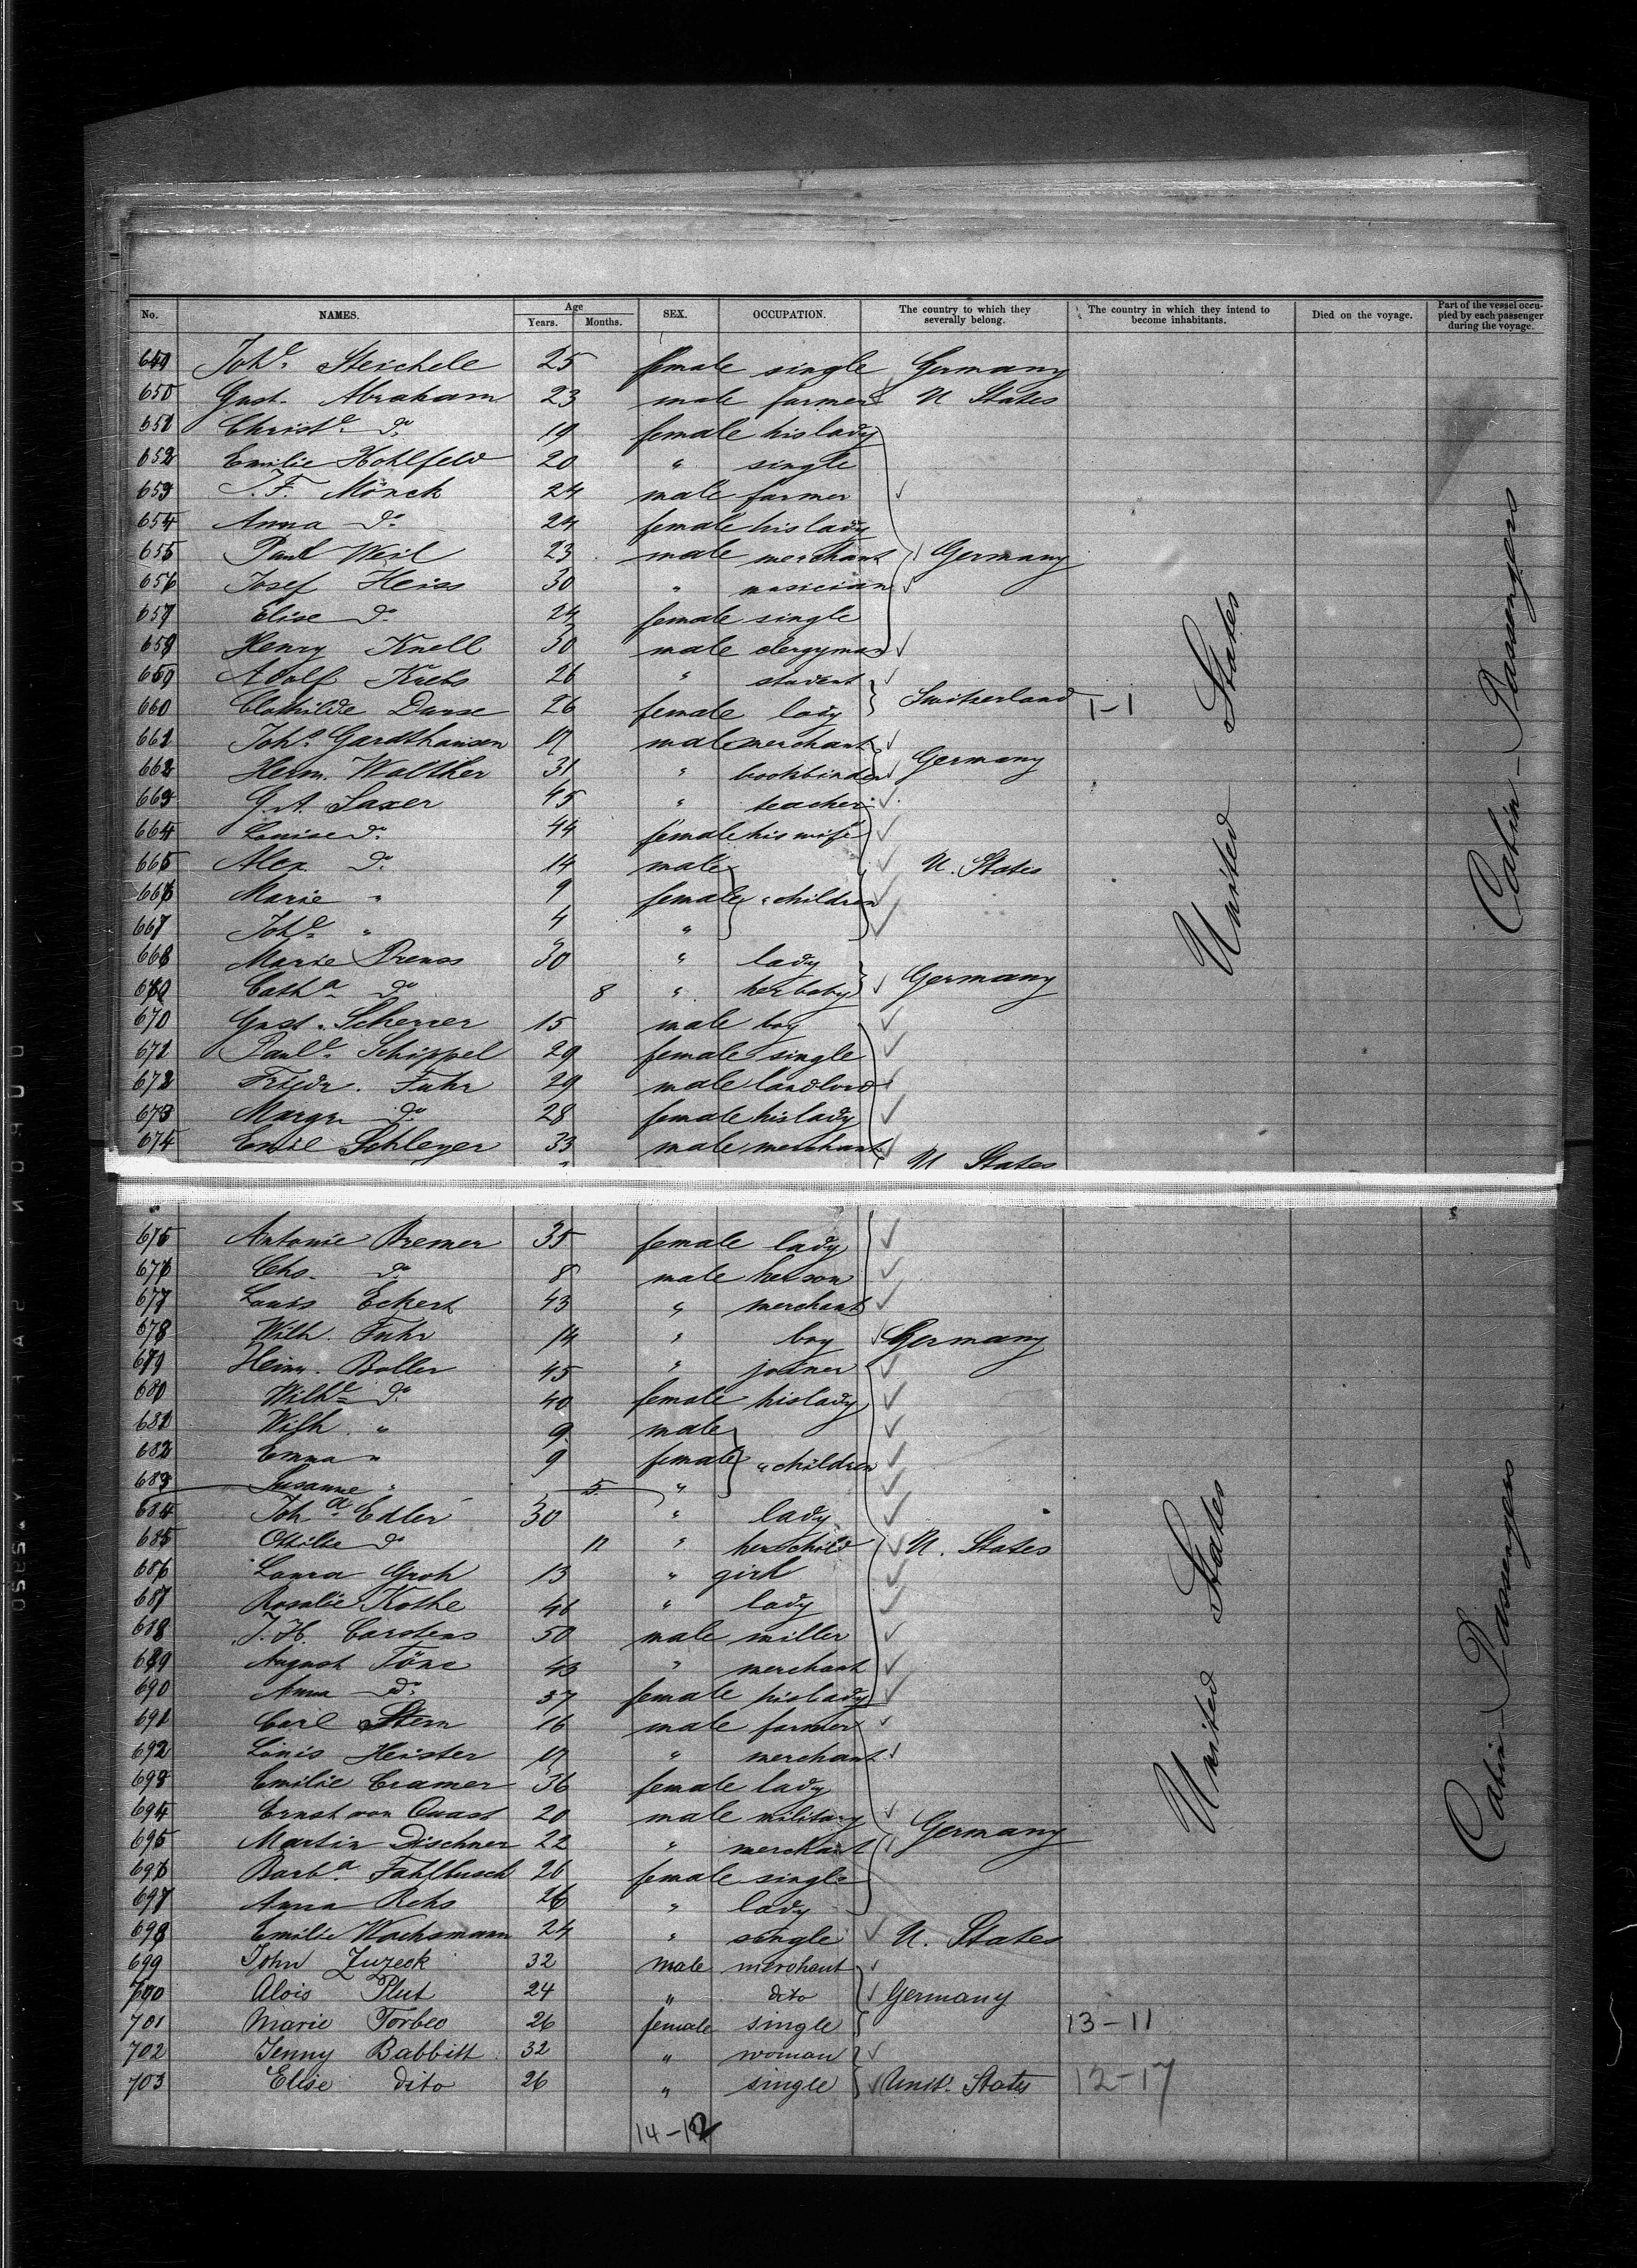 No. NAMES. Age Years. Months. SEX. OCCUPATION. The country to which they severally belong. The country in which they intend to become inhabitants. Died on the voyage. Part of the vessel occupied by each passenger during the voyage.
649 Joh.e Steichele 25 female single Germany
650 Gust. Abraham 23 male farmer U States
651 Christ.e do 19 female his lady
652 Emilie Kohlfeld 20 " single
653 J. F. Mönck 24 male farmer
654 Anna do 24 female his lady
655 Paul Weil 23 male merchant Germany
656 Josef Heiss 30 " musician
657 Elise do 24 female single
658 Henry Knell 30 male clergyman
659 Adolf Krebs 26 " student
660 Clothilde Durse 26 female lady Switzerland 1-1
661 Joh.s Gardthausen 17 male merchant
662 Herm. Walther 31 " bookbinder Germany
663 G. A. Saxer 45 " teacher
664 Louise do 44 female his wife
665 Alex. do 14 male U. States
666 Marie " 9 female " children
667 Joh.e " 4 "
668 Marie Preuss 30 " lady
669 Cath.a do 8 " her baby Germany
670 Gust. Scherrer 15 male boy
671 Paul.e Schippel 29 female single
672 Friedr. Fuhr 29 male landlord
673 Margr. do 28 female his lady
674 Emil Schleyer 33 male merchant
U States
675 Antonie Bremer 35 female lady
676 Chs. do 8 male her son
677 Louis Eckert 43 " merchant
678 Wilh. Fuhr 14 " boy Germany
679 Heinr. Boller 45 " joiner
680 Wilh.e do 40 female his lady
681 Wilh. " 9 male
682 Emma " 9 female " children
683 Susanne " 5 "
684 Joh.a Edler 30 " lady
685 Ottilie do 11 " her child U. States
686 Laura Groh 13 " girl
687 Rosalie Kothe 46 " lady
688 J. H. Carstens 50 male miller
689 August Töne 43 " merchant
690 Anna do 37 female his lady
691 Carl Stern 16 male farmer
692 Louis Heister 17 " merchant
693 Emilie Cramer 36 female lady
694 Ernst von Quast 20 male military Germany
695 Martin Dischner 22 " merchant
696 Barb.a Fahlbusch 20 female single
697 Anna Rehs 26 " lady
698 Emilie Wachsmann 24 " single U. States
699 John Zuzeck 32 male merchant
700 Alois Plut 24 " dito Germany
701 Marie Torbeo 26 female single 13-11
702 Jenny Babbitt 32 " woman
703 Elise dito 26 " single Unit. States 12-17
14-12
United States
Cabin Passengers
United States
Cabin Passengers